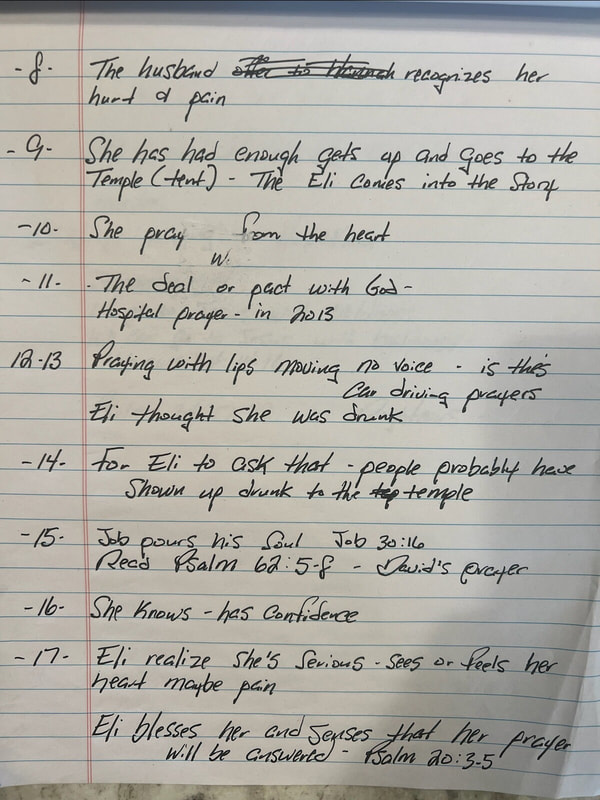 -8- The husband recognizes her
hurt & pain
-9- She has had enough gets up and goes to the
Temple (tent) - The Eli comes into the story
-10- She pray from the heart
W.
-11- . The deal or pact with God -
Hospital prayer - in 2013
12-13 Praying with lips moving no voice - is this
Car driving prayers
Eli thought she was drunk
-14- For Eli to ask that - people probably have
Shown up drunk to the temple
-15- Job pours his soul Job 30:16
Read Psalm 62:5-8 - David's prayer
-16- She knows - has confidence
-17- Eli realize she's serious - sees or feels her
heart maybe pain
Eli blesses her and senses that her prayer
will be answered - Psalm 20:3-5